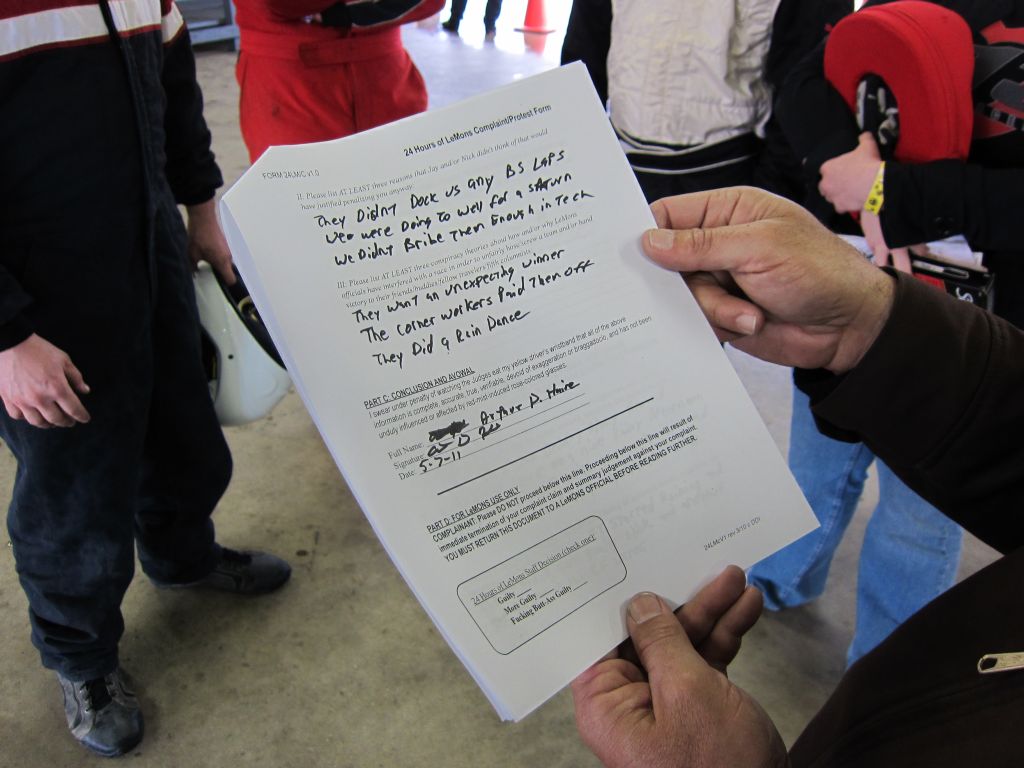 24 Hours of LeMons Complaint/Protest Form
FORM 24LM/C v1.0
II. Please list AT LEAST three reasons that Jay and/or Nick didn't think of that would
have justified penalizing you anyway:
They Didnt Dock us any BS LAPS
Weo were Doing to Well for a saturn
We Didnt Bribe Them Enough in Tech
III. Please list AT LEAST three conspiracy theories about how and/or why LeMons
officials have interfered with a race in order to unfairly hose/screw a team and/or hand
victory to their friends/buddies/fellow travelers/fifth columnists:
They want an unexpecting winner
The corner workers Paid Them Off
They Did a Rain Dance
PART C: CONCLUSION AND AVOWAL
I swear under penalty of watching the Judges eat my yellow driver's wristband that all of the above
information is complete, accurate, true, verifiable, devoid of exaggeration or braggadocio, and has not been
unduly influenced or affected by red-mist-induced rose-colored glasses.
Full Name: Arthur D.
Signature:
Date: 5-7-11
PART D: FOR LeMONS USE ONLY
COMPLAINANT: Please DO NOT proceed below this line. Proceeding below this line will result of
immediate termination of your complaint claim and summary judgement against your complaint.
YOU MUST RETURN THIS DOCUMENT TO A LeMONS OFFICIAL BEFORE READING FURTHER.
24 Hours of LeMons Staff Decision (check one):
Guilty ___
More Guilty ___
Fucking Butt-Ass Guilty ___